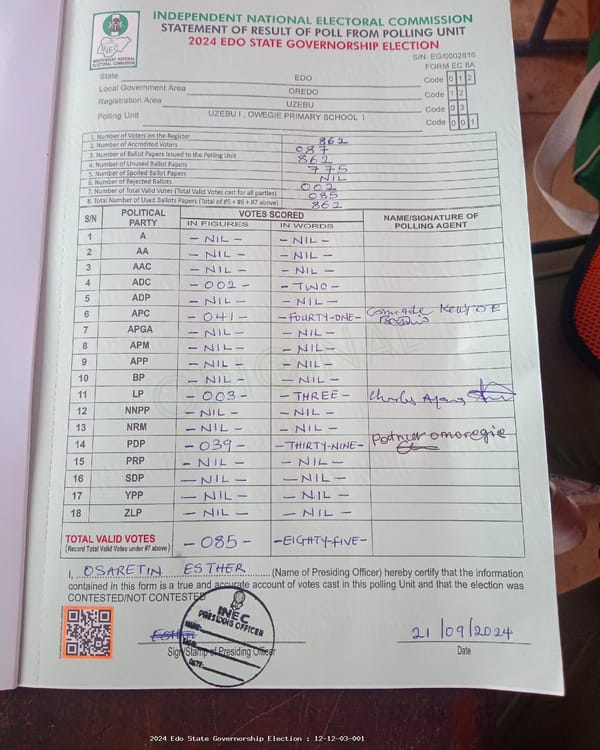 INDEPENDENT NATIONAL ELECTORAL COMMISSION
STATEMENT OF RESULT OF POLL FROM POLLING UNIT
2024 EDO STATE GOVERNORSHIP ELECTION
S/N: EG/0002816
FORM EC 8A
INEC
INDEPENDENT NATIONAL ELECTORAL COMMISSION
State EDO Code 0 1 2
Local Government Area OREDO Code 1 2
Registration Area UZEBU Code 0 3
Polling Unit UZEBU I, OWEGIE PRIMARY SCHOOL I Code 0 0 1
1. Number of Voters on the Register 862
2. Number of Accredited Voters 087
3. Number of Ballot Papers Issued to the Polling Unit 862
4. Number of Unused Ballot Papers 775
5. Number of Spoiled Ballot Papers NIL
6. Number of Rejected Ballots 002
7. Number of Total Valid Votes (Total Valid Votes cast for all parties) 085
8. Total Number of Used Ballots Papers (Total of #5 + #6 + #7 above) 862
S/N POLITICAL PARTY VOTES SCORED NAME/SIGNATURE OF POLLING AGENT
IN FIGURES IN WORDS
1 A - NIL - - NIL -
2 AA - NIL - - NIL -
3 AAC - NIL - - NIL -
4 ADC - 002 - - TWO -
5 ADP - NIL - - NIL -
6 APC - 041 - - FOURTY-ONE- Comrade
7 APGA - NIL - - NIL -
8 APM - NIL - - NIL -
9 APP - NIL - - NIL -
10 BP - NIL - - NIL -
11 LP - 003 - - THREE - Charles
12 NNPP - NIL - - NIL -
13 NRM - NIL - - NIL -
14 PDP - 039 - - THIRTY-NINE- omoregie
15 PRP - NIL - - NIL -
16 SDP - NIL - - NIL -
17 YPP - NIL - - NIL -
18 ZLP - NIL - - NIL -
TOTAL VALID VOTES - 085 - -EIGHTY-FIVE-
(Record Total Valid Votes under #7 above)
I, OSARETIN ESTHER (Name of Presiding Officer) hereby certify that the information
contained in this form is a true and accurate account of votes cast in this polling Unit and that the election was
CONTESTED/NOT CONTESTED
INEC
PRESIDING OFFICER
NAME:
SIGN:
DATE:
21/09/2024
Sign/Stamp of Presiding Officer Date
2024 Edo State Governorship Election : 12-12-03-001